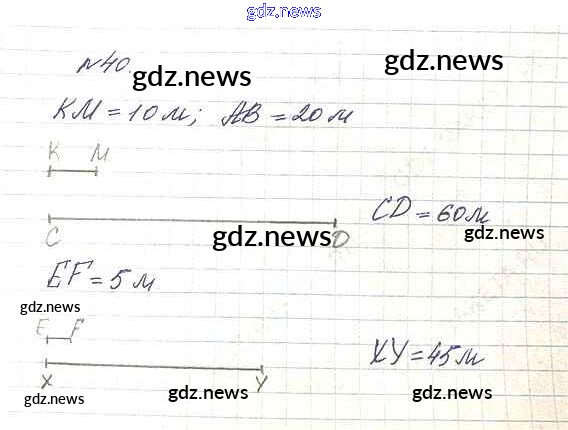 gdz.news
№40.
gdz.news gdz.news
KM = 10 м; AB = 20 м
K M
CD = 60 м
C gdz.news D gdz.news
EF = 5 м
gdz.news
E F
XY = 45 м
X Y
gdz.news gdz.news gdz.news